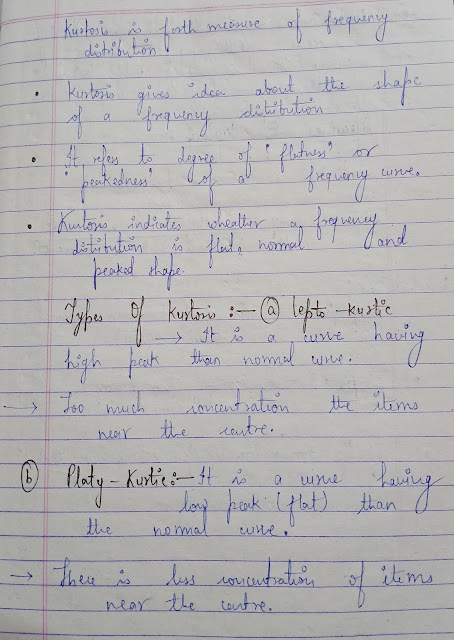 Kurtosis is forth measure of frequency
distribution
• Kurtosis gives idea about the shape
of a frequency distribution
• It refers to degree of "flatness" or
"peakedness" of a frequency curve.
• Kurtosis indicates wheather a frequency
distribution is flat, normal and
peaked shape.
Types Of Kurtosis :— (a) lepto-kurtic
→ It is a curve having
high peak than normal curve.
→ Too much concentration the items
near the centre.
(b) Platy-Kurtic:— It is a curve having
low peak (flat) than
the normal curve.
→ There is less concentration of items
near the centre.